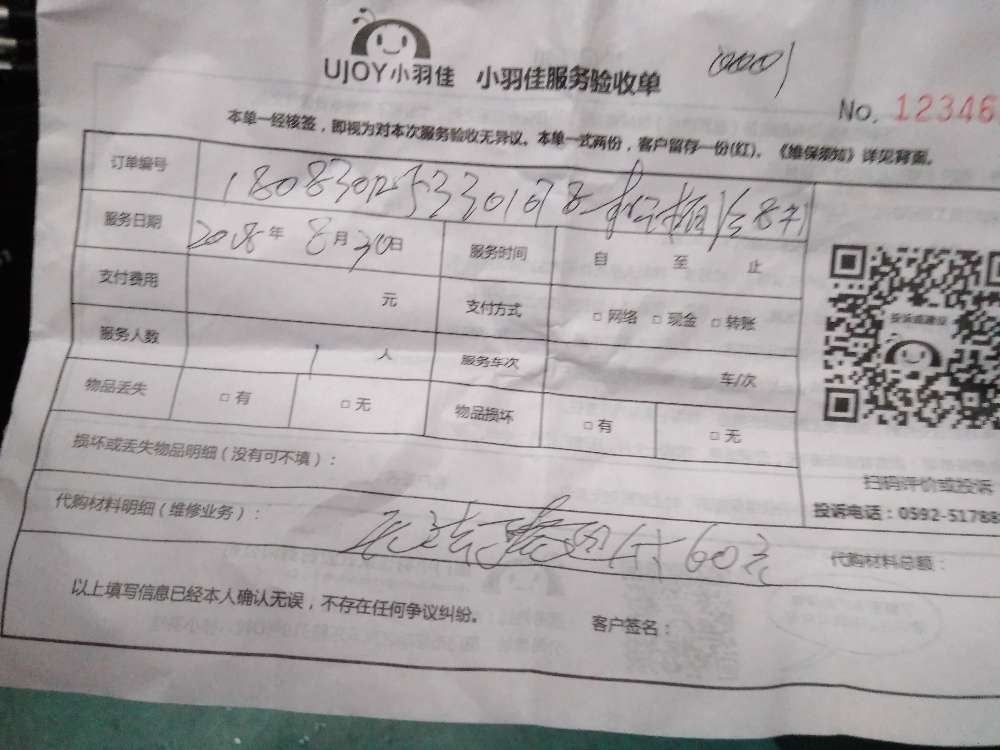 UJOY小羽佳 小羽佳服务验收单 0001
No. 12346
本单一经核签，即视为对本次服务验收无异议。本单一式两份，客户留存一份(红)。《维保须知》详见背面。
订单编号
服务日期 2018年 8月30日 服务时间 自 至 止
支付费用 元 支付方式 □ 网络 □ 现金 □ 转账
服务人数 1 人 服务车次 车/次
物品丢失 □ 有 □ 无 物品损坏 □ 有 □ 无
损坏或丢失物品明细（没有可不填）：
扫码评价或投诉
投诉电话：0592-51788
代购材料明细（维修业务）： 60元
代购材料总额：
以上填写信息已经本人确认无误，不存在任何争议纠纷。 客户签名：